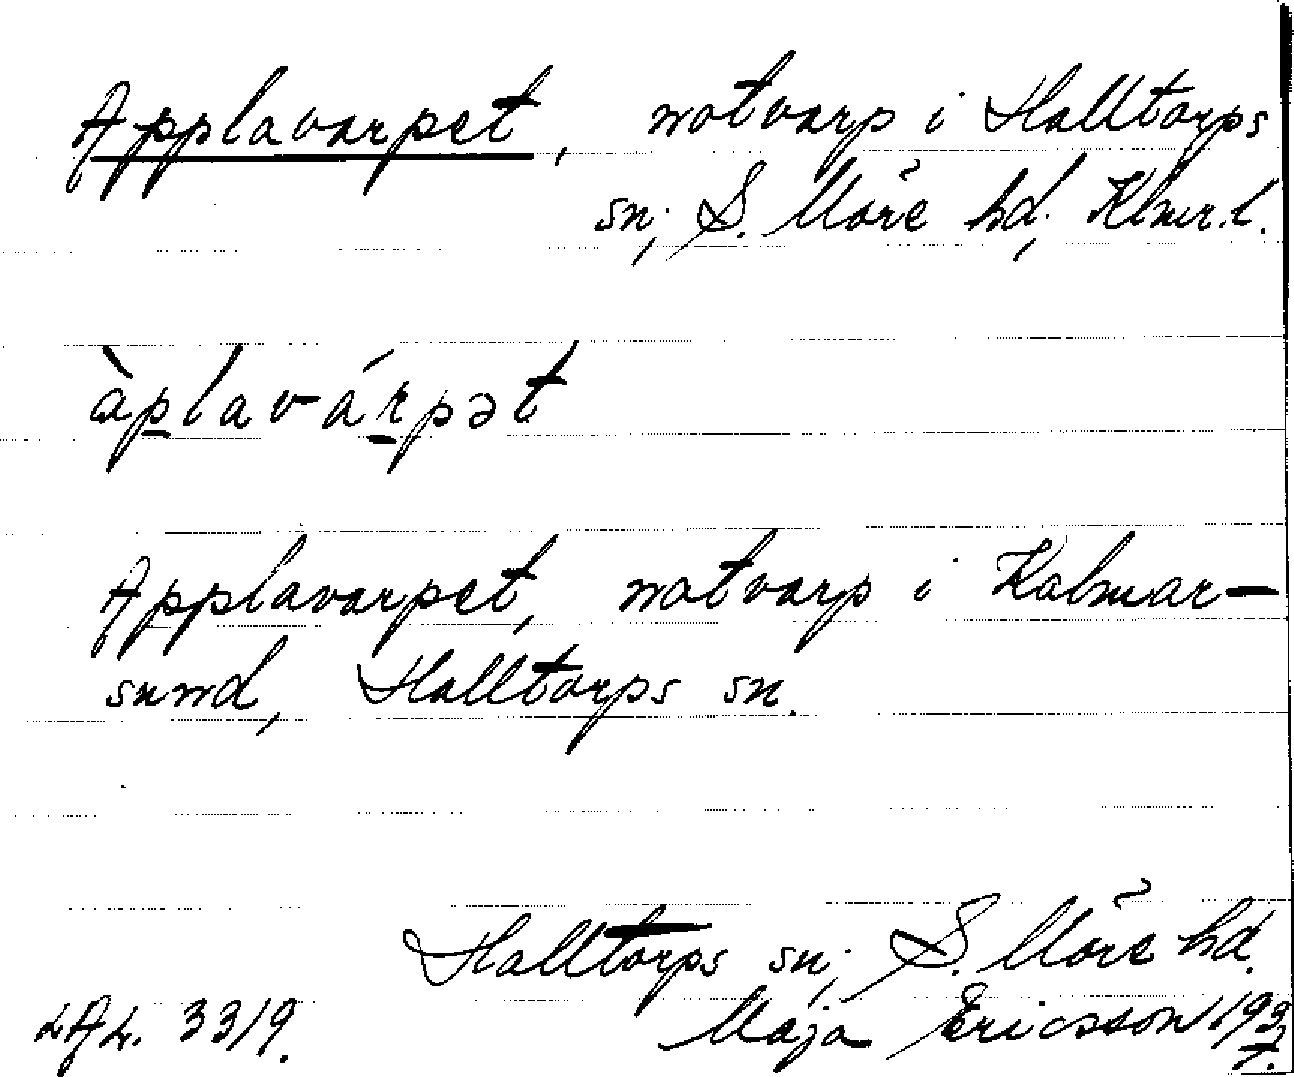 Applavarpet, notvarp i Halltorps
sn, S. Möre hd, Klmr.l.
àplavárpət
Applavarpet, notvarp i Kalmar-
sund, Halltorps sn.
Halltorps sn, S. Möre hd.
LAL. 3319. Maja Ericsson 1937.